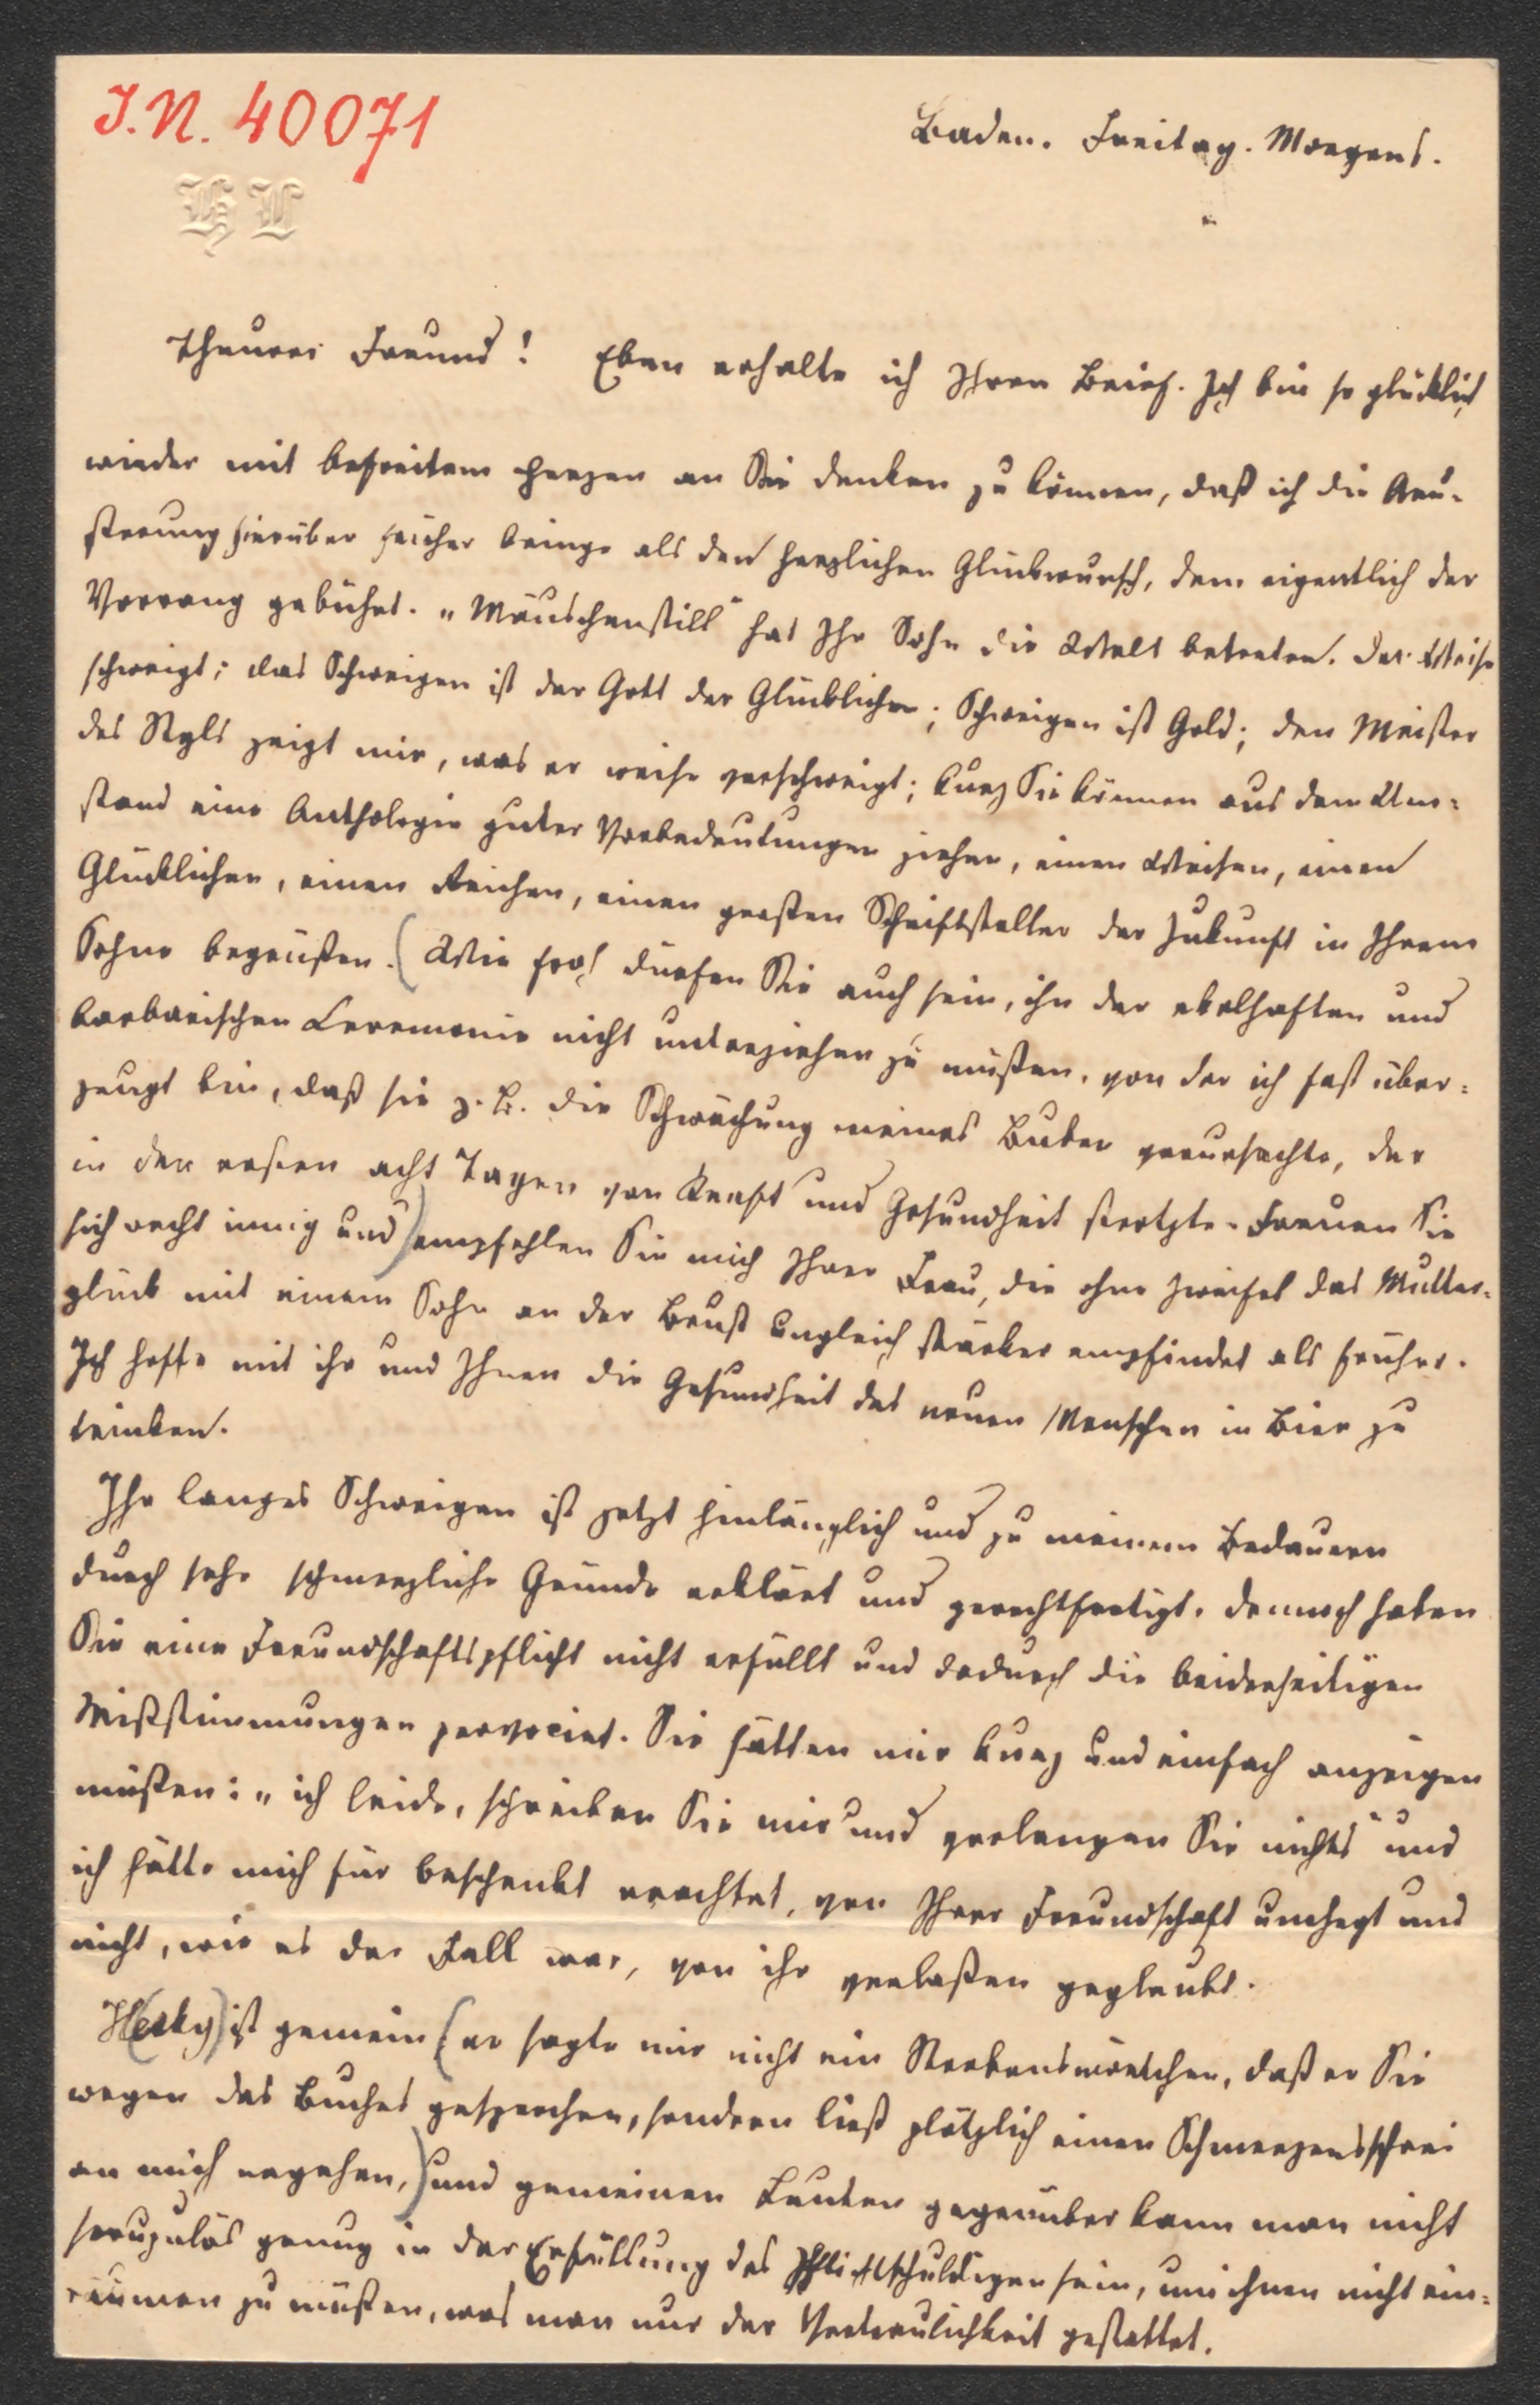 J.N. 40071
HL
Baden. Freitag. Morgens.
Theurer Freund! Eben erhalte ich Ihren Brief. Ich bin so glücklich
wieder mit befreitem Herzen an Sie denken zu können, daß ich die Aeu-
ßerung hierüber früher bringe als den herzlichen Glückwunsch, dem eigentlich der
Vorrang gebührt. „Mäuschenstill" hat Ihr Sohn die Welt betreten. Der Weise
schweigt; das Schweigen ist der Gott der Glücklichen; Schweigen ist Gold; den Meister
des Styls zeigt mir, was er weise verschweigt; kurz Sie können aus dem Um-
stand eine Anthologie guter Vorbedeutungen ziehen, einen Weisen, einen
Glücklichen, einen Reichen, einen großen Schriftsteller der Zukunft in Ihrem
Sohne begrüßen. (Wie froh dürfen Sie auch sein, ihn der ekelhaften und
barbarischen Ceremonie nicht unterziehen zu müßen, von der ich fast über-
zeugt bin, daß sie z. B. die Schwächung meines Buben verursachte, der
in den ersten acht Tagen von Kraft und Gesundheit strotzte. Freuen Sie
sich recht innig und) empfehlen Sie mich Ihrer Frau, die ohne Zweifel das Mutter-
glück mit einem Sohn an der Brust ungleich stärker empfindet als früher.
Ich hoffe mit ihr und Ihnen die Gesundheit des neuen Menschen in Bier zu
trinken.
Ihr langes Schweigen ist jetzt hinlänglich und zu meinem Bedauern
durch sehr schmerzliche Gründe erklärt und gerechtfertigt. Dennoch haben
Sie eine Freundschaftspflicht nicht erfüllt und dadurch die beiderseitigen
Mißstimmungen provocirt. Sie hätten mir kurz und einfach anzeigen
müßen: „ich leide, schreiben Sie mir und verlangen Sie nichts" und
ich hätte mich für beschenkt erachtet, von Ihrer Freundschaft umhegt und
nicht, wie es der Fall war, von ihr verlaßen geglaubt.
ist gemein (er sagte mir nicht ein Sterbenswörtchen, daß er Sie
wegen des Buches gesprochen, sondern ließ plötzlich einen Schmerzensschrei
an mich ergehen,) und gemeinen Leuten gegenüber kann man nicht
scrupulös genug in der Erfüllung des Pflichtschuldigen sein, um ihnen nicht ein-
räumen zu müßen, was man nur der Vertraulichkeit gestattet.